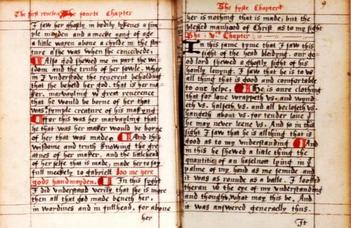 The first revelation The fourth Chapter
I saw her ghostly in bodily lykenes a sim
ple mayden and a meeke yong of age
a little waxen aboue a chylde in the sta
ture as she was when she conceiued.
Also god shewed me in part the wis
dom and the truth of her sowle. wher
in I vnderstode the reverent beholding
that she beheld her god. that is her ma
ker. marvayling wt great reverence
that he would be borne of her that
was a symple creature of his makyng.
For this was her marvayling that
he that was her maker would be borne
of her that was made. And this
wisdome and truth knowing the gre
atnes of her maker. and the littlehead
of her selfe that is made. made her to say
full meekely to gabriell loo me here
gods handmayden. In this sight
I did vnderstand verily. that she is more
then all that god made beneth her.
in wordines and in fullhead. for aboue
her
The fyfte Chapter
9
her is nothing that is made. but the
blessed manhood of Christ as to my sight
The V Chapter
In this same tyme that I saw this
sight of the head bleding. our go
od lord shewed a ghostly sight of his
homly louyng. I saw that he is to vs
all thing that is good and comfortable
to our helpe. He is oure clothing
that for loue wrappeth vs. and wyndeth
vs. halseth vs. and all becloseth vs.
hangeth about vs. for tender loue
he may never leeue vs. And so in this
sight I saw that he is all thing that is
good as to my vnderstanding And
in this he shewed a little thing the
quantitie of an haselnott lying in the
palme of my hand as me semide and
it was as rounde as a balle. I looked
theran wt the eye of my vnderstanding
and thought. what may this be. And
it was answered generaelly thus.
It